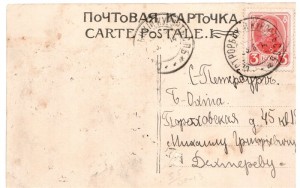 ПОЧТОВАЯ КАРТОЧКА.
CARTE POSTALE.
С. Петербургъ
Б-Охта
Пороховская д 45 кв
Михаилу Григорьевичу
Дехтереву